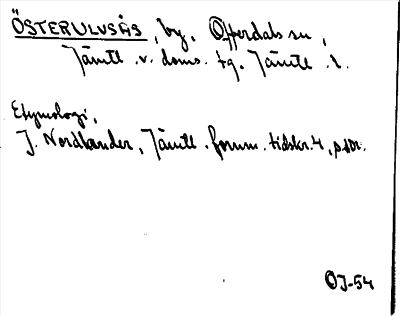 ÖSTERULVSÅS, by. Offerdals sn,
Jämtl. v. doms. tg. Jämtl. l.
Etymologi,
J. Nordlander, Jämtl. fornm. tidskr. 4,
OJ-54